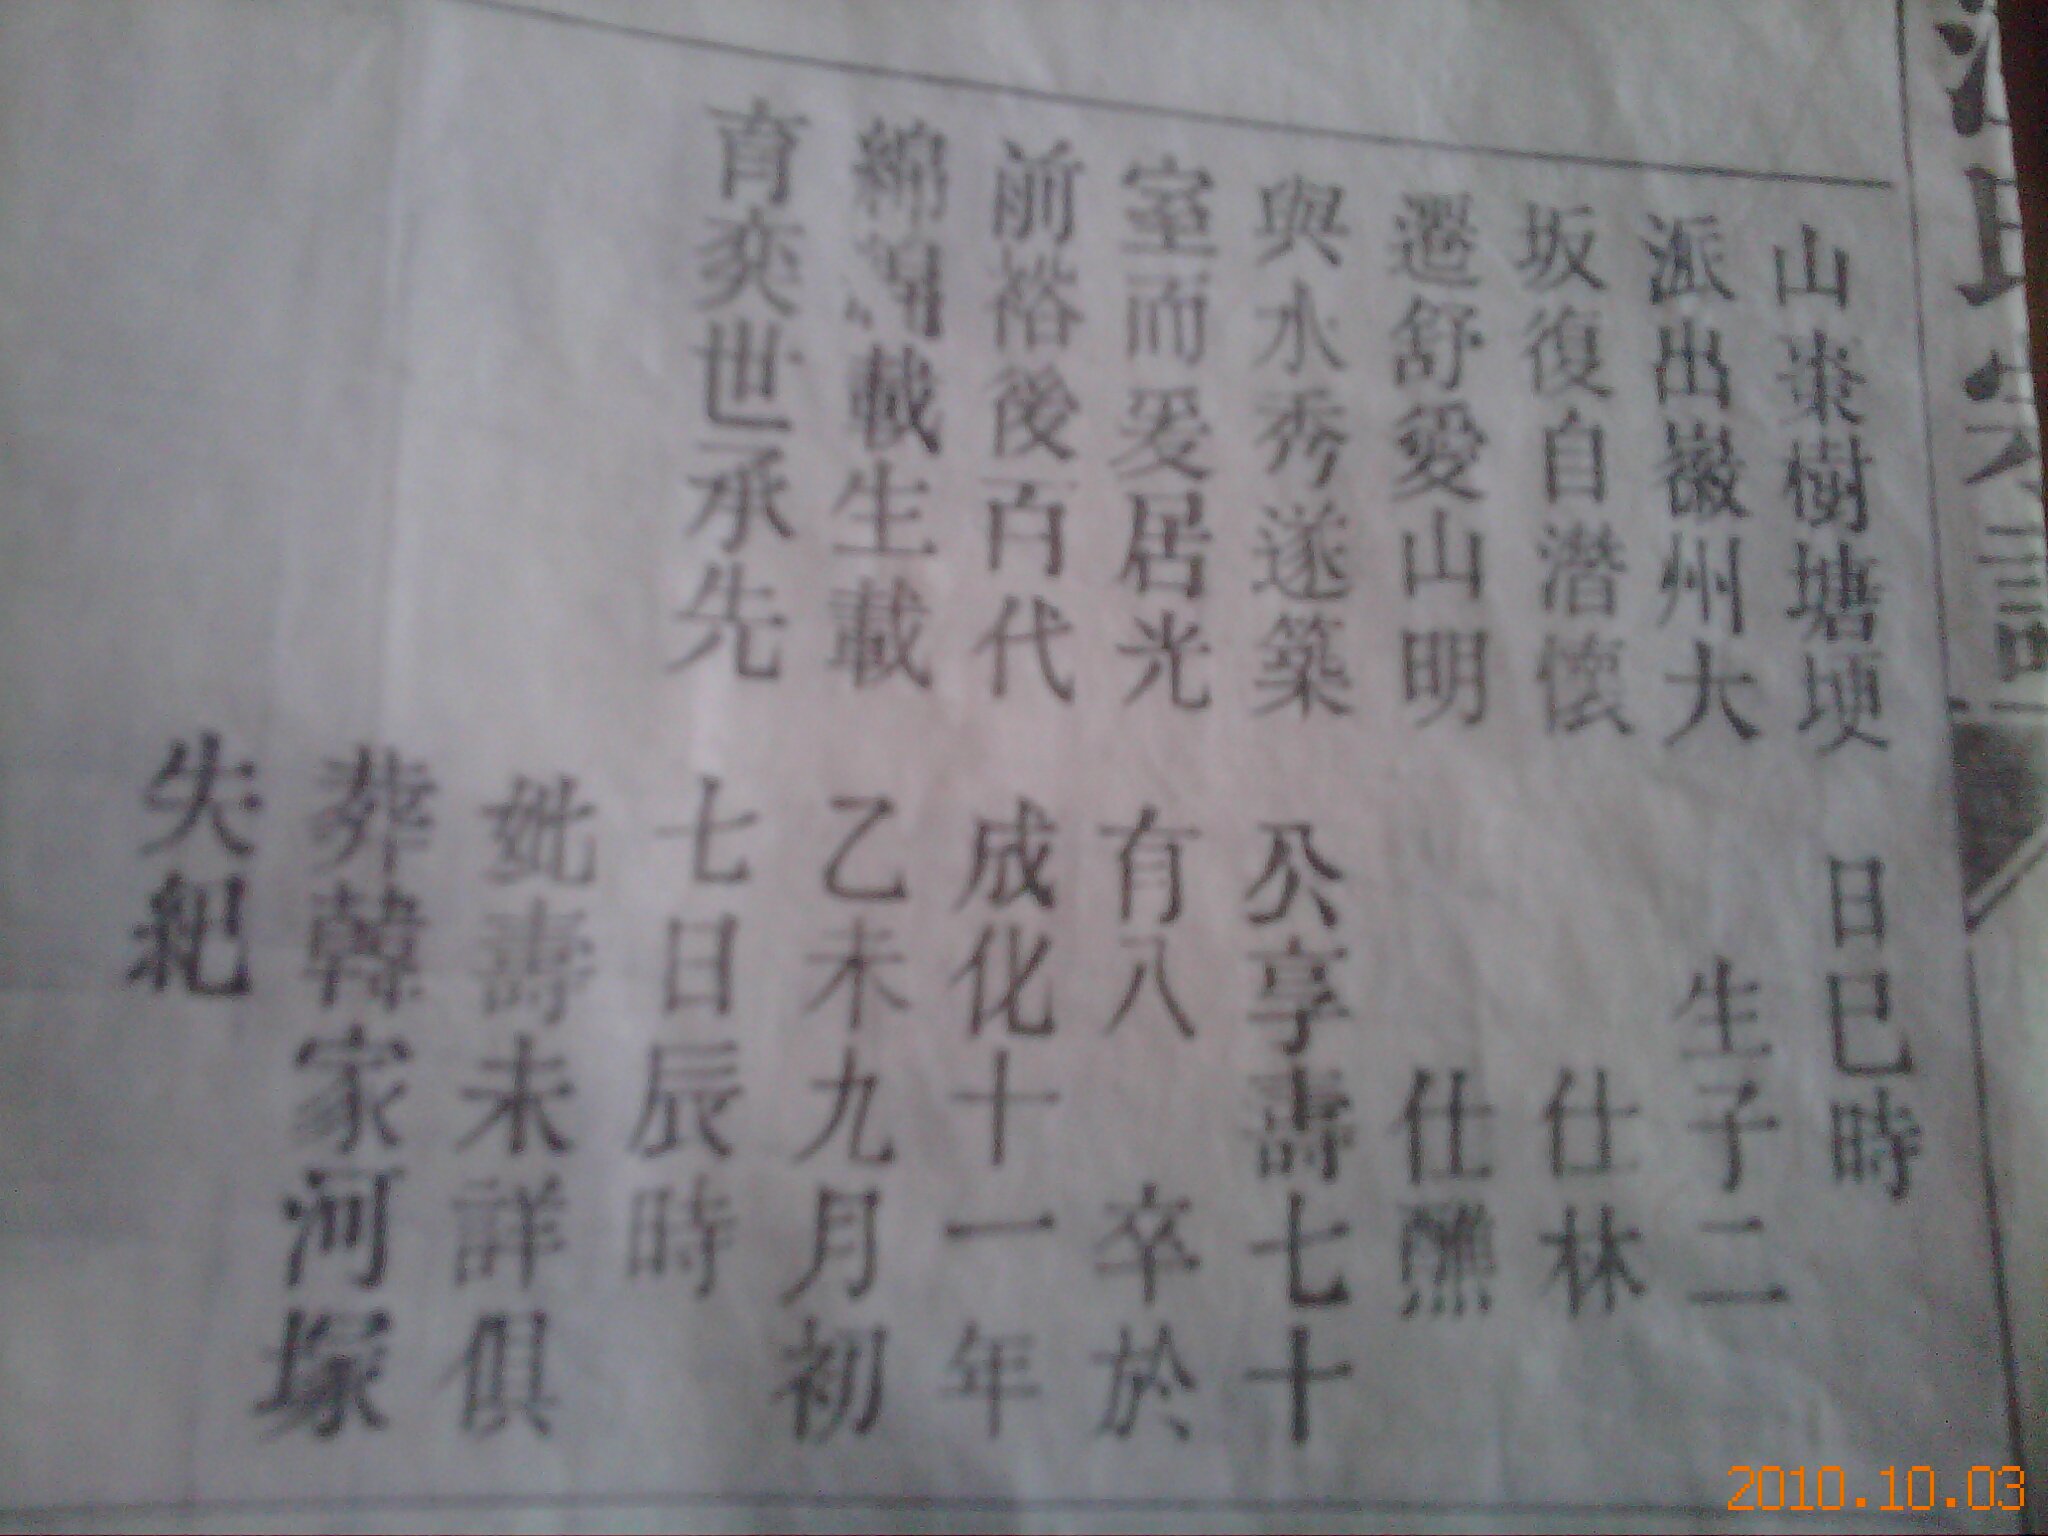 氏宗譜
山棗樹塘埂
派出徽州大
坂復自潛懷
遷舒愛山明
與水秀遂築
室而爰居光
前裕後百代
綿綿載生載
育奕世承先
日巳時
生子二
仕林
仕
公享壽七十
有八 卒於
成化十一年
乙未九月初
七日辰時
妣壽未詳俱
葬韓家河塚
失紀
2010.10.03